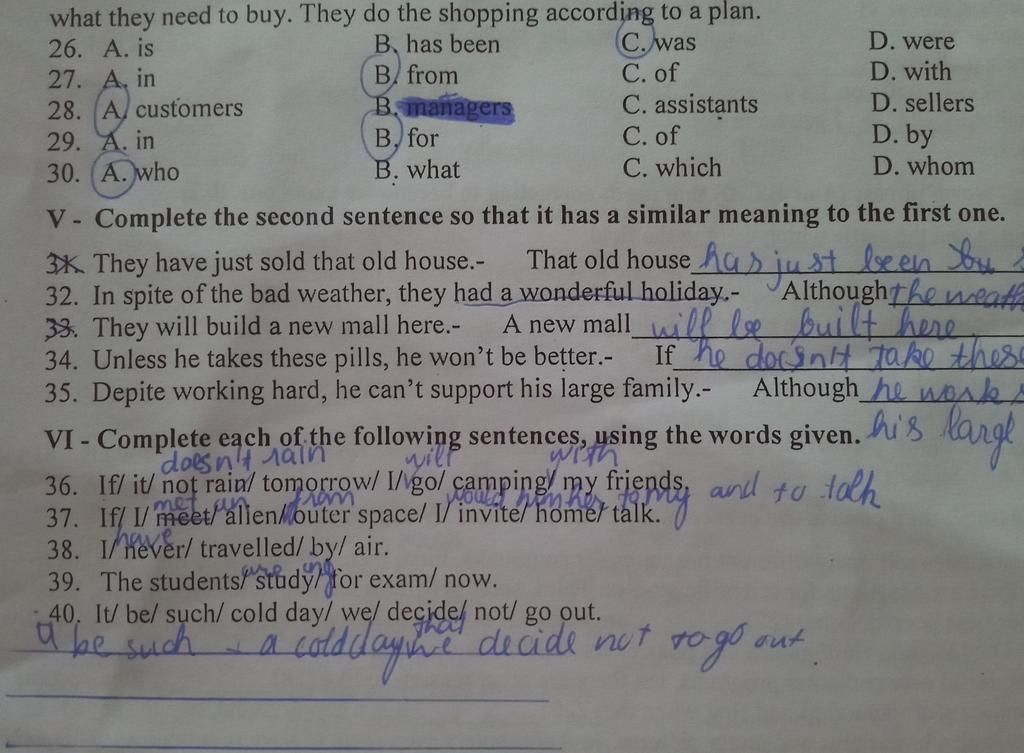 what they need to buy. They do the shopping according to a plan.
26. A. is B. has been C. was D. were
27. A. in B. from C. of D. with
28. A. customers B. managers C. assistants D. sellers
29. A. in B. for C. of D. by
30. A. who B. what C. which D. whom
V - Complete the second sentence so that it has a similar meaning to the first one.
31. They have just sold that old house.- That old house has just been
32. In spite of the bad weather, they had a wonderful holiday.- Although the weath
33. They will build a new mall here.- A new mall will be built here
34. Unless he takes these pills, he won't be better.- If he doesn't take thes
35. Depite working hard, he can't support his large family.- Although he work
VI - Complete each of the following sentences, using the words given. his larg
doesn't rain will with
36. If/ it/ not rain/ tomorrow/ I/ go/ camping/ my friends.
met an from would him to my and to talk
37. If/ I/ meet/ alien/ outer space/ I/ invite/ home/ talk.
have
38. I/ never/ travelled/ by/ air.
are ing
39. The students/ study/ for exam/ now.
40. It/ be/ such/ cold day/ we/ decide/ not/ go out.
that
be such a cold day we decide not to go out